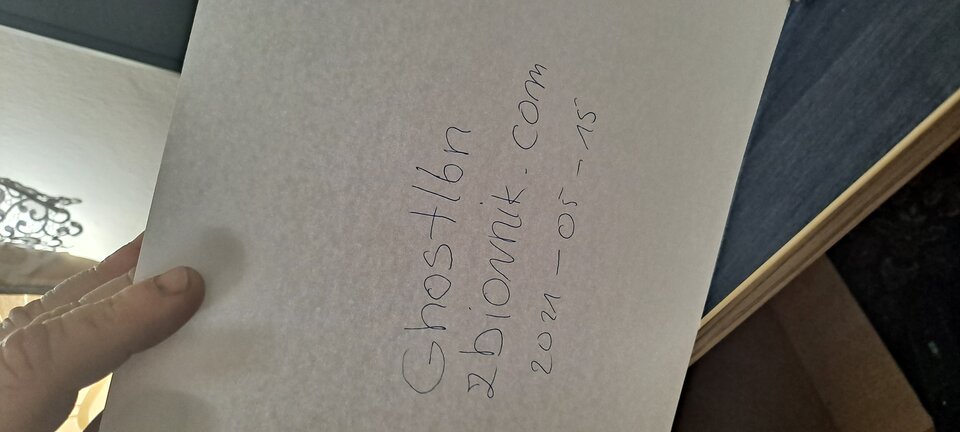 Ghost16n
zbiornik.com
2021-05-15